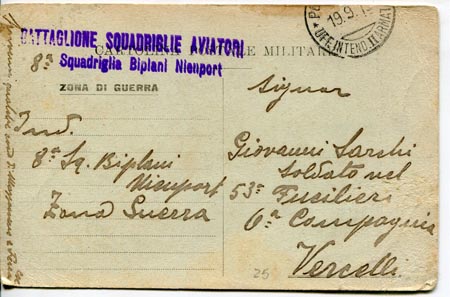 BATTAGLIONE SQUADRIGLIE AVIATORI
CARTOLINA POSTALE MILITARE
8ª Squadriglia Biplani Nieuport
ZONA DI GUERRA
19.9.1
UFF. INTEND. II ARMAT
Ind.
8ª Sq. Biplani
Nieuport
Zona Guerra
Signor
Giovanni Sarchi
Soldato nel
53º Fucilieri
6ª Compagnia
Vercelli
25